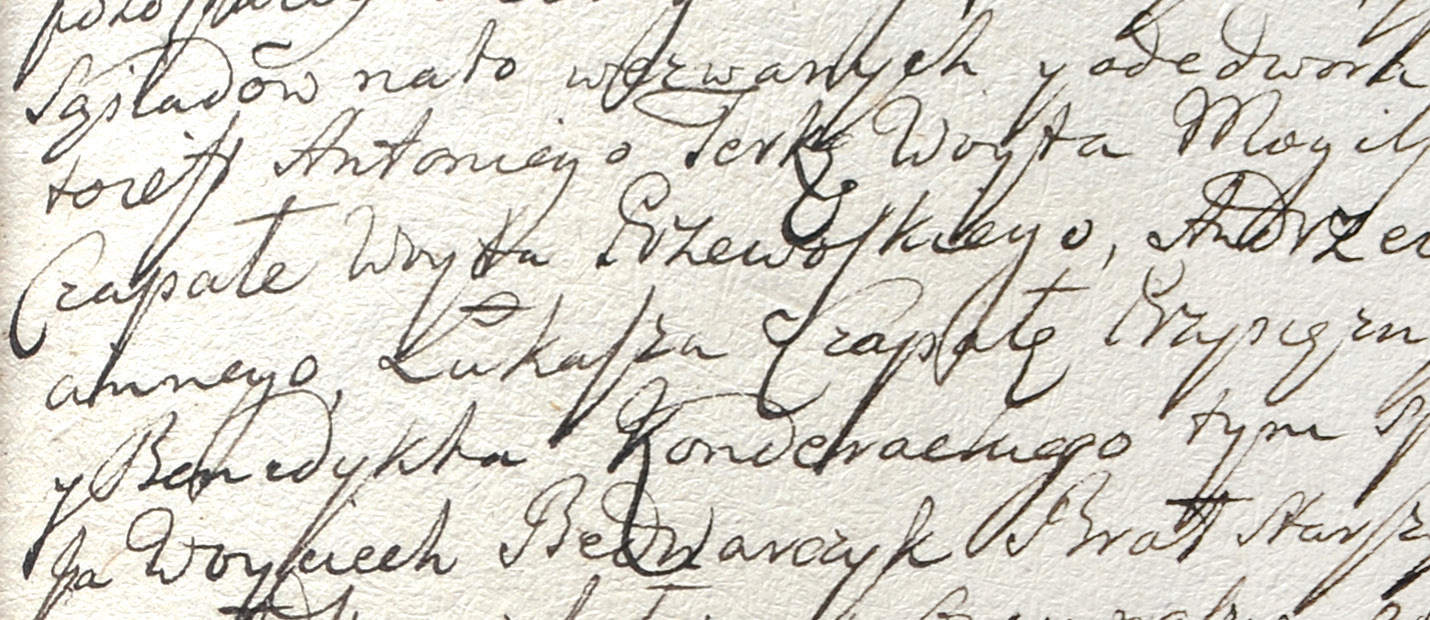 Sąsiadów na to wezwanych y ode dworu
to iest Antoniego Serkę Woyta Mogil
Czapałe Woyta Grzewolskiego, Andrzei
annego, Łukasza Czapałę Przysiężn
y Benedykta Konderackiego tym Sp
Ja Woyciech Bednarczyk Brat Starsz